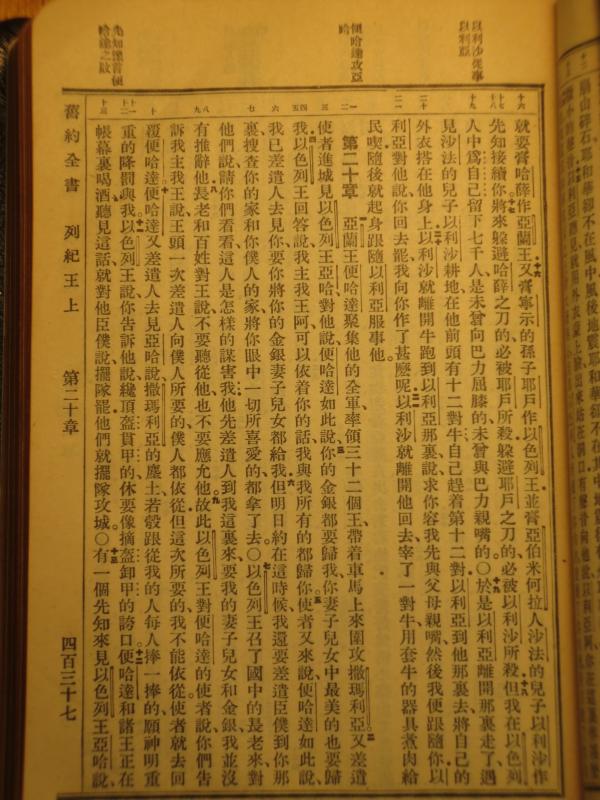 以利沙從事
以利亞
便哈達攻亞
哈
哈達之敗
就要膏哈薛作亞蘭王又膏寧示的孫子耶戶作以色列王並膏亞伯米何拉人沙法的兒子以利沙作
先知接續你將來躲避哈薛之刀的必被耶戶所殺躲避耶戶之刀的必被以利沙所殺但我在以色列
人中爲自己留下七千人是未曾向巴力屈膝的未曾與巴力親嘴的〇於是以利亞離開那裏走了遇
見沙法的兒子以利沙耕地在他前頭有十二對牛自己趕着第十二對以利亞到他那裏去將自己的
外衣搭在他身上以利沙就離開牛跑到以利亞那裏說求你容我先與父母親嘴然後我便跟隨你以
利亞對他說你回去罷我向你作了甚麼呢以利沙就離開他回去宰了一對牛用套牛的器具煮肉給
民喫隨後就起身跟隨以利亞服事他
第二十章 亞蘭王便哈達聚集他的全軍率領三十二個王帶着車馬上來圍攻撒瑪利亞又差遣
使者進城見以色列王亞哈對他說便哈達如此說你的金銀都要歸我你妻子兒女中最美的也要歸
我以色列王回答說我主我王阿可以依着你的話我與我所有的都歸你使者又來說便哈達如此說
我已差遣人去見你要你將你的金銀妻子兒女都給我但明日約在這時候我還要差遣臣僕到你那
裏搜查你的家和你僕人的家將你眼中一切所喜愛的都拿了去〇以色列王召了國中的長老來對
他們說請你們看看這人是怎樣的謀害我他先差遣人到我這裏來要我的妻子兒女和金銀我並沒
有推辭他長老和百姓對王說不要聽從他也不要應允他故此以色列王對便哈達的使者說你們告
訴我主我王說王頭一次差遣人向僕人所要的僕人都依從但這次所要的我不能依從使者就去回
覆便哈達便哈達又差遣人去見亞哈說撒瑪利亞的塵土若彀跟從我的人每人捧一捧的願神明重
重的降罰與我以色列王說你告訴他說纔頂盔貫甲的休要像摘盔卸甲的誇口便哈達和諸王正在
帳幕裏喝酒聽見這話就對他臣僕說擺隊罷他們就擺隊攻城〇有一個先知來見以色列王亞哈說
舊約全書 列紀王上 第二十章 四百三十七